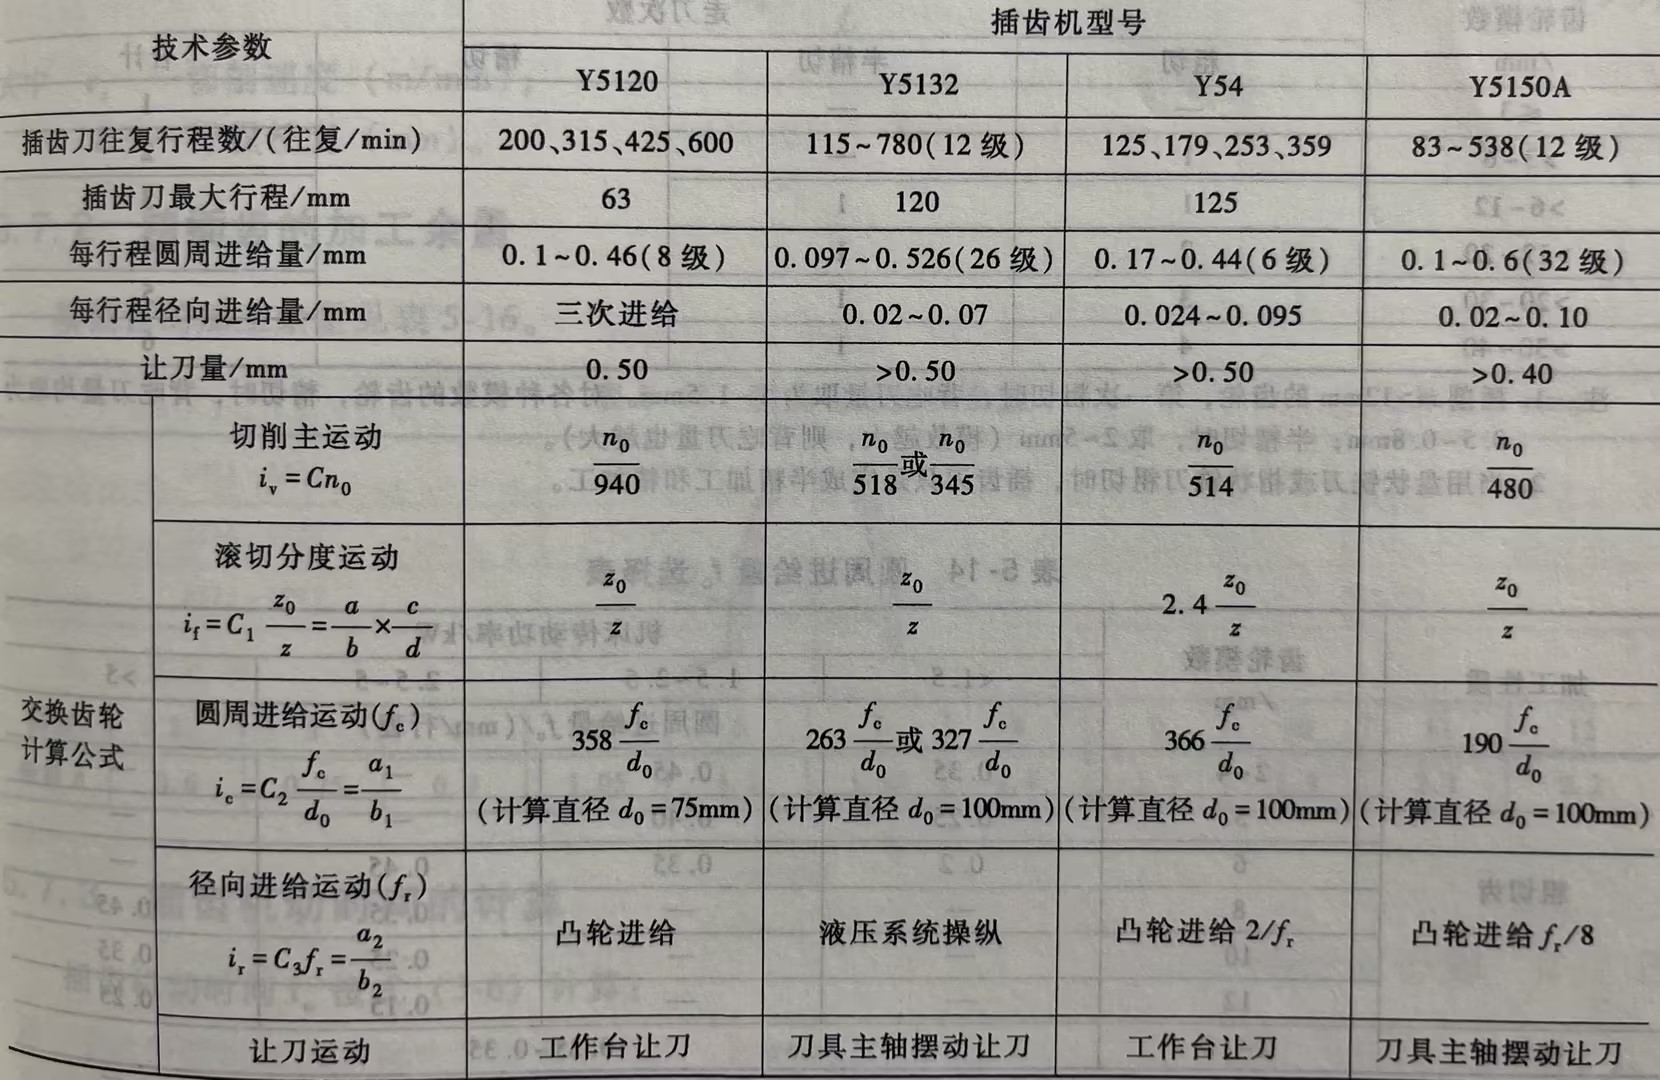 技术参数
插齿机型号
Y5120 Y5132 Y54 Y5150A
插齿刀往复行程数/(往复/min) 200、315、425、600 115~780(12 级) 125、179、253、359 83~538(12 级)
插齿刀最大行程/mm 63 120 125
每行程圆周进给量/mm 0.1~0.46(8 级) 0.097~0.526(26 级) 0.17~0.44(6 级) 0.1~0.6(32 级)
每行程径向进给量/mm 三次进给 0.02~0.07 0.024~0.095 0.02~0.10
让刀量/mm 0.50 >0.50 >0.50 >0.40
交换齿轮
计算公式
切削主运动
i_v=Cn_0 n_0/940 n_0/518 或 n_0/345 n_0/514 n_0/480
滚切分度运动
i_f=C_1 z_0/z = a/b × c/d z_0/z z_0/z 2.4 z_0/z z_0/z
圆周进给运动(f_c)
i_c=C_2 f_c/d_0 = a_1/b_1 358 f_c/d_0 263 f_c/d_0 或 327 f_c/d_0 366 f_c/d_0 190 f_c/d_0
(计算直径 d_0=75mm) (计算直径 d_0=100mm) (计算直径 d_0=100mm) (计算直径 d_0=100mm)
径向进给运动(f_r)
i_r=C_3f_r= a_2/b_2 凸轮进给 液压系统操纵 凸轮进给 2/f_r 凸轮进给 f_r/8
让刀运动 工作台让刀 刀具主轴摆动让刀 工作台让刀 刀具主轴摆动让刀